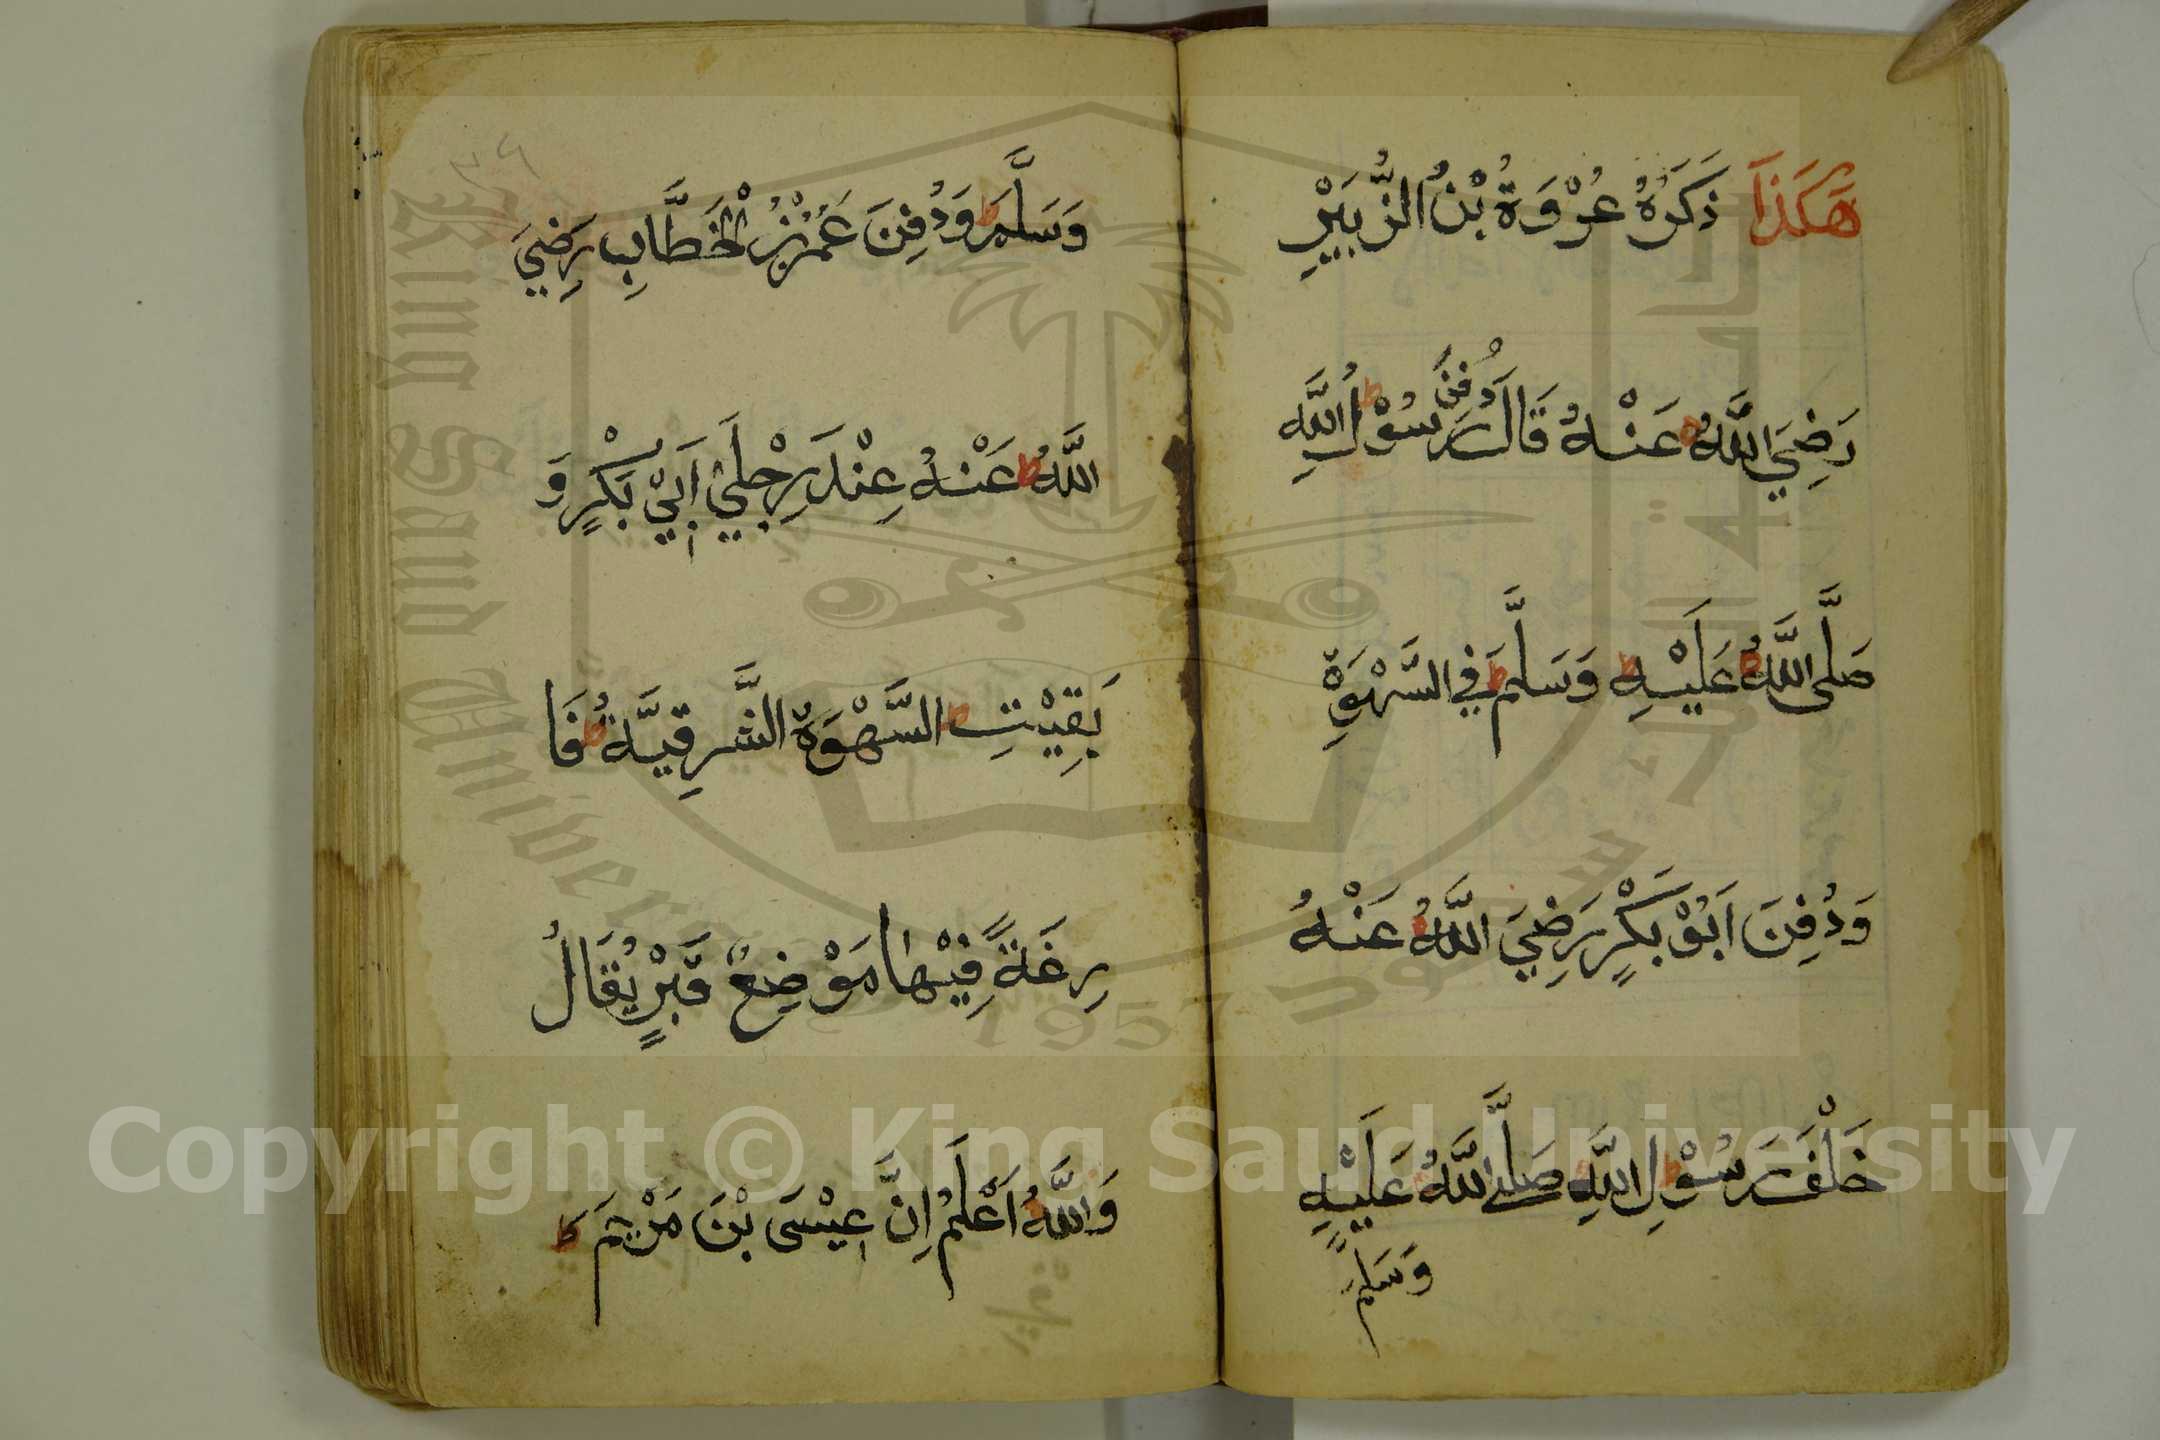 هَكَذَا ذَكَرَهُ عُرْوَةُ بْنُ الزُّبَيْرِ
رَضِيَ اللَّهُ عَنْهُ قَالَ دُفِنَ رَسُوْلُ اللَّهِ
صَلَّى اللَّهُ عَلَيْهِ وَسَلَّمَ فِي السَّهْوَةِ
وَدُفِنَ اَبُوْ بَكْرٍ رَضِيَ اللَّهُ عَنْهُ
خَلْفَ رَسُوْلِ اللَّهِ صَلَّى اللَّهُ عَلَيْهِ
وَسَلَّمَ
وَسَلَّمَ وَدُفِنَ عُمَرُ بْنُ الْخَطَّابِ رَضِيَ
اللَّهُ عَنْهُ عِنْدَ رِجْلَيْ اَبِيْ بَكْرٍ وَ
بَقِيَتِ السَّهْوَةُ الشَّرقِيَّةُ فَا
رِغَةً فِيْهَا مَوْضِعُ قَبْرٍ يُقَالُ
وَاللَّهُ اَعْلَمُ اِنَّ عِيْسَى بْنَ مَرْيَمَ
King Saud University
1957
Copyright © King Saud University